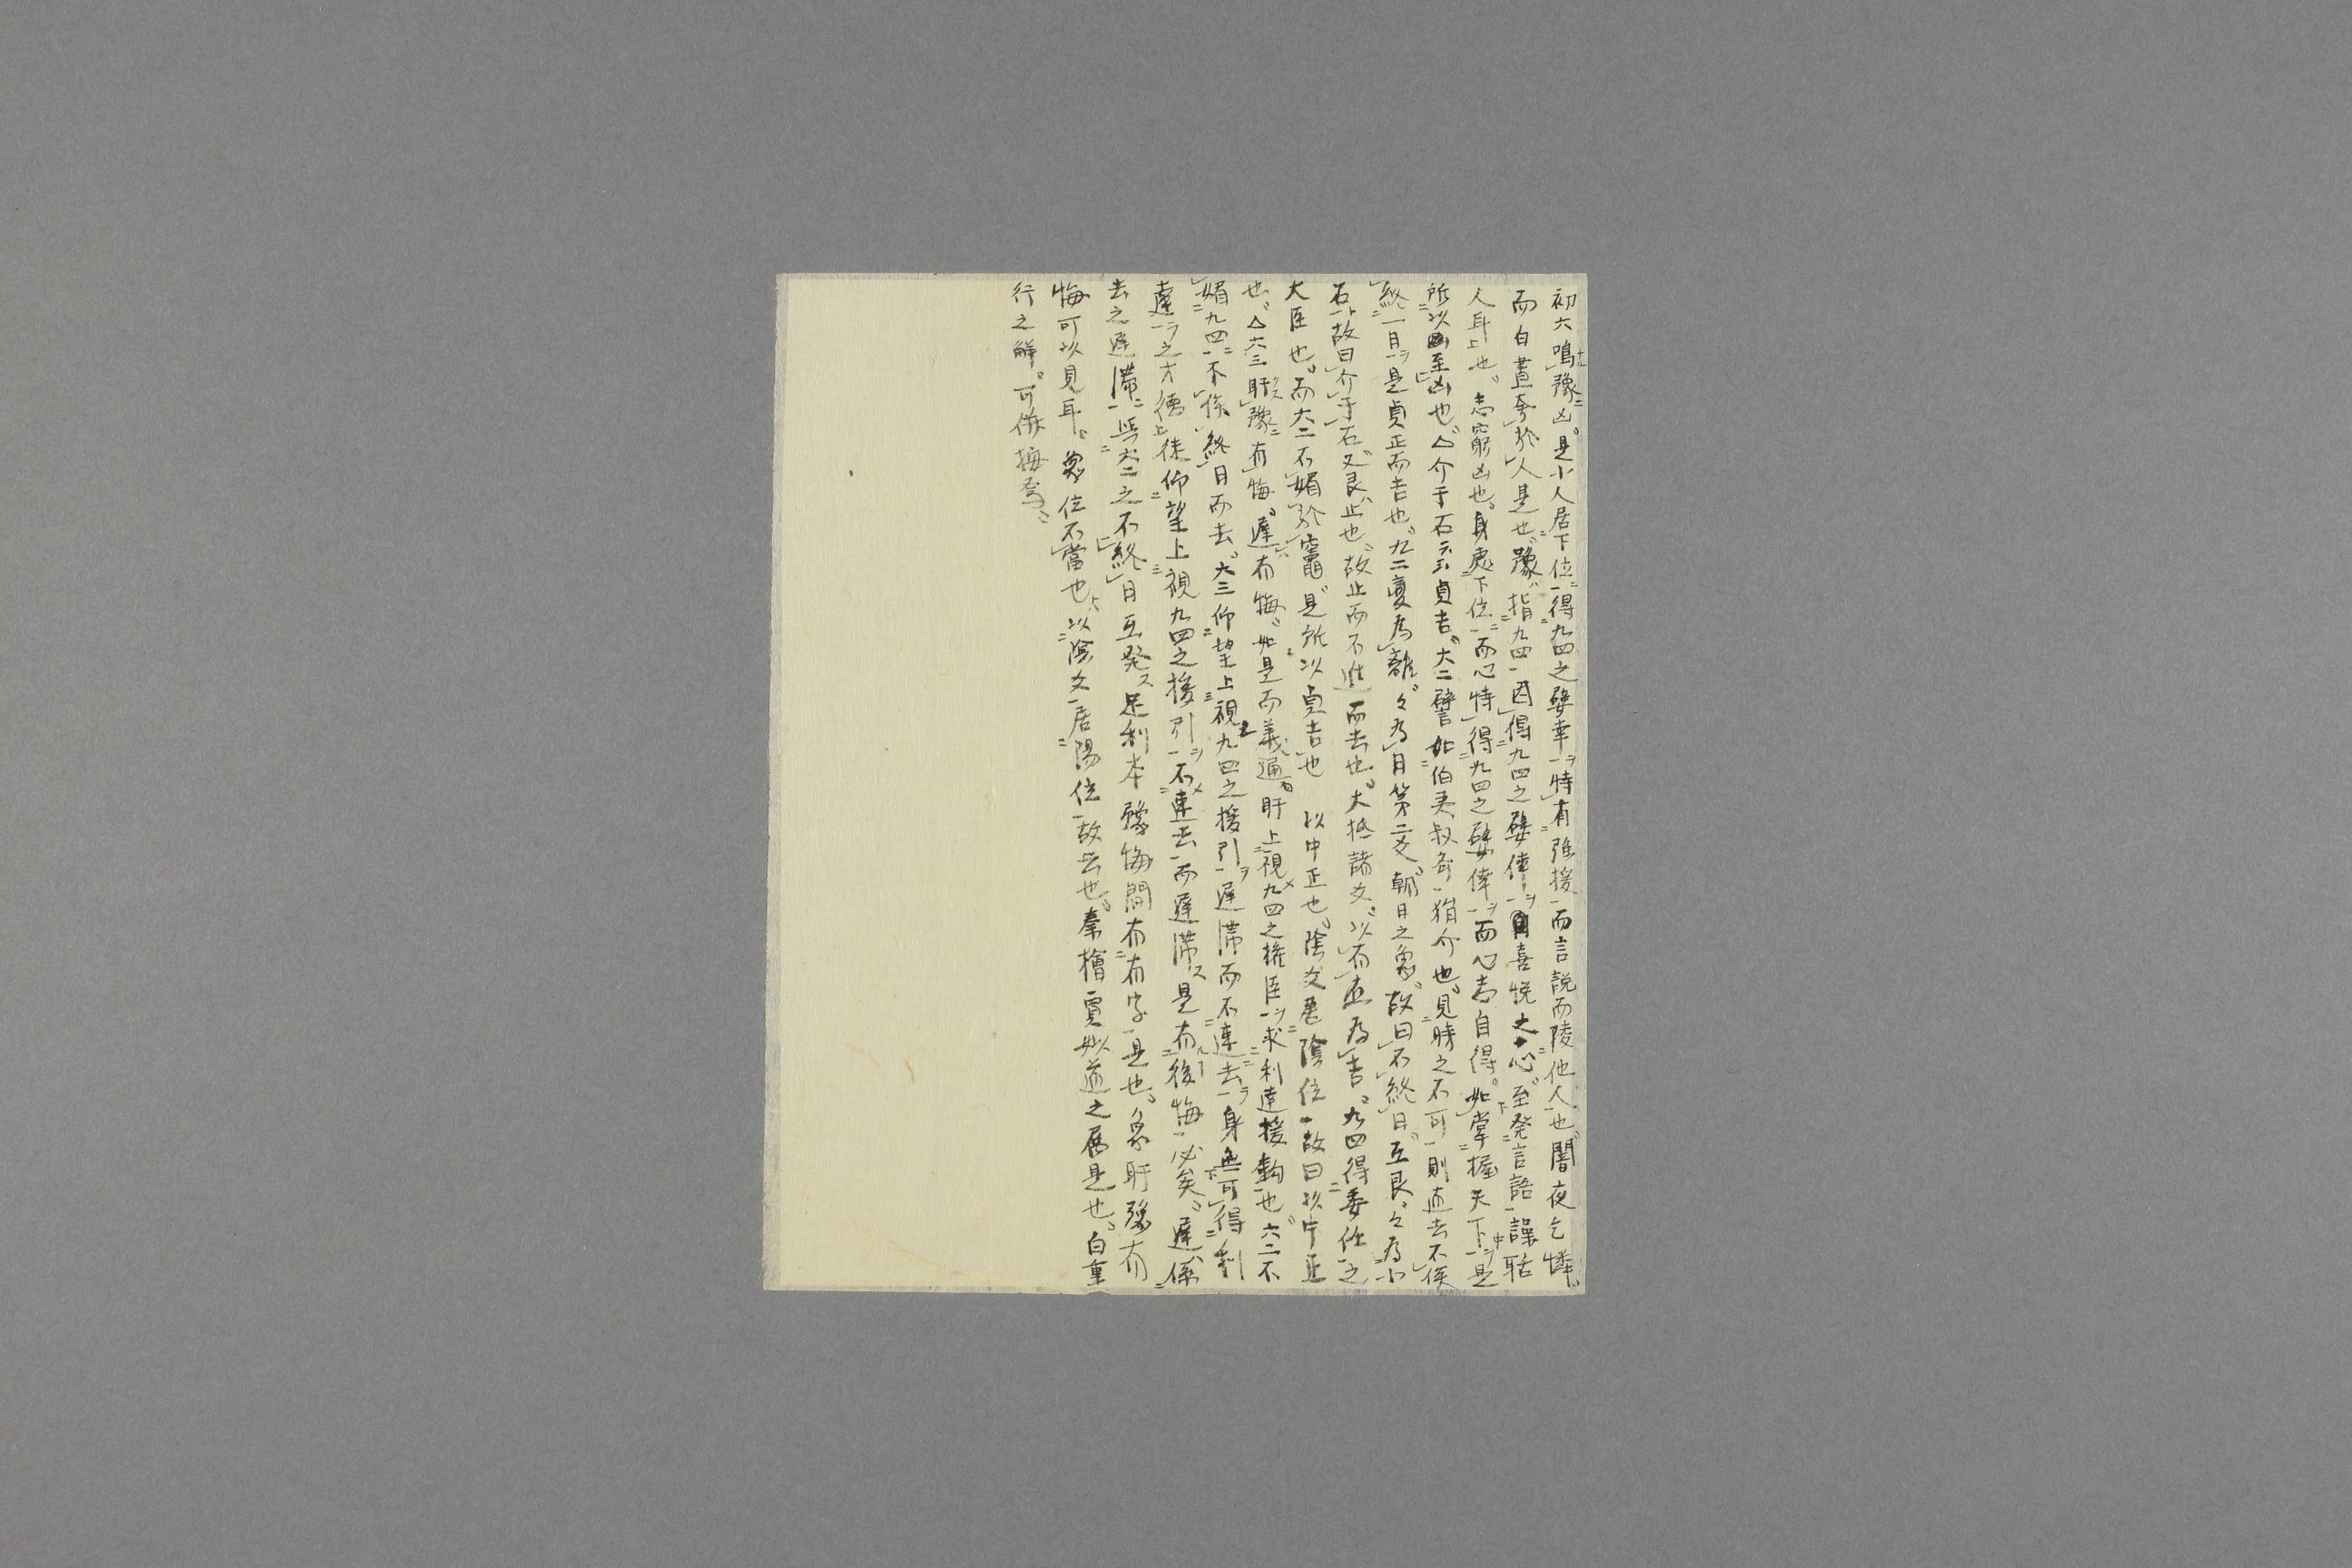 初六鳴豫凶是小人居下位得九四之嬖幸特有強援而言説而陵他人也闇夜乞憐
而白晝夸於人是也豫指九四因得九四之嬖倖自喜悦之心至発言語譟聒
人耳也志窮凶也身處下位而心恃得九四之嬖倖而心志自得如掌握天下是
所以至凶也△介于石云云貞吉六二譬如伯夷叔斉狷介也見時之不可則直去不俟
終一日是貞正而吉也九二変為離々為日第二爻朝日之象故曰不終日互艮々為小
石故曰介于石又艮止也故止而不進而去也大抵諸爻以有應為吉九四得委任之
大臣也而六二不媚於竈是所以貞吉也 以中正也陰爻居陰位故曰以中正
也△六三盱豫有悔遲有悔如是而義通盱上視九四之権臣求利達援也六二不
媚九四不俟終日而去六三仰望上視九四之援引遲滞而不速去身無可得利
達之才徳徒仰望上視九四之援引不速去而遲滞是有後悔必矣遲係
去之遅滞與六二之不終日互発足利本豫悔間有有字是也象盱豫有
悔可以見耳象位不當也以陰爻居陽位故云也秦檜賈似道之属是也白重
行之解可併按焉